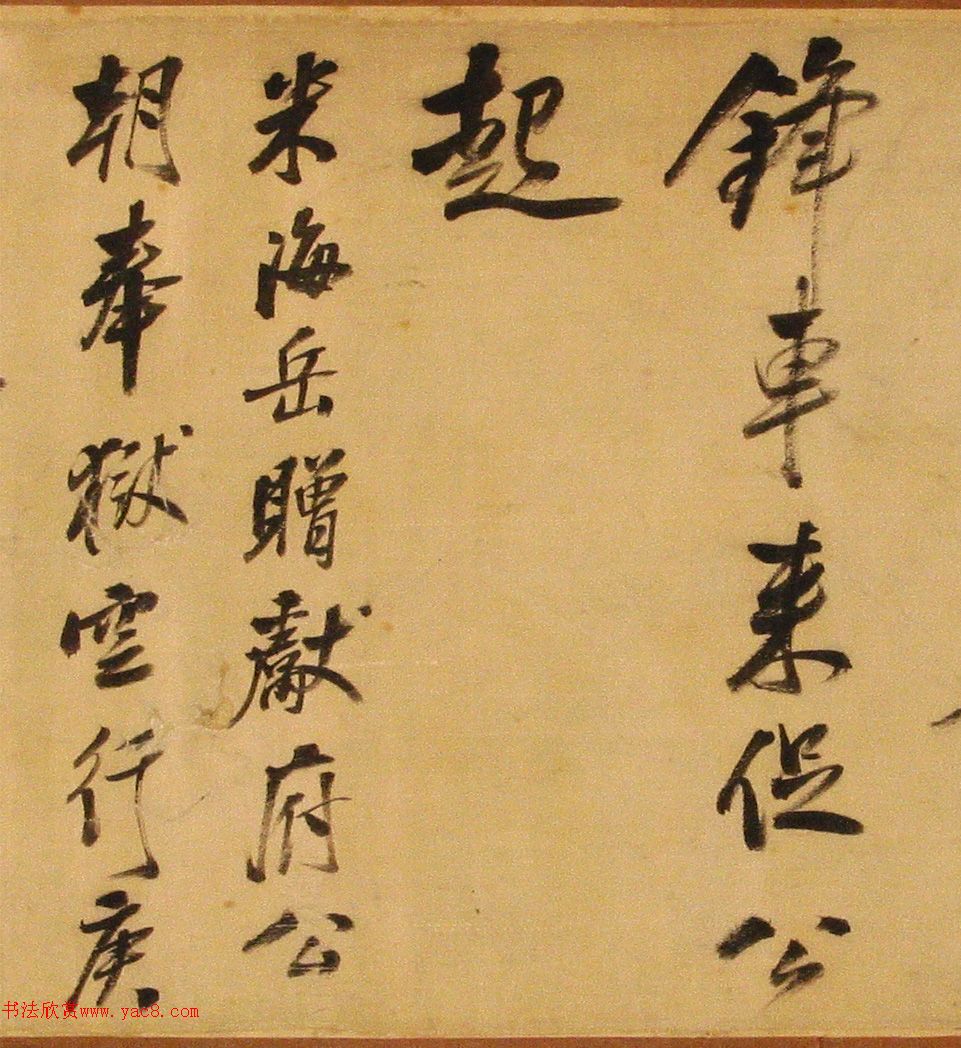 鋒車来促公
起
米海岳贈獻府公
朝奉獄空行庚
书法欣赏www.yac8.com